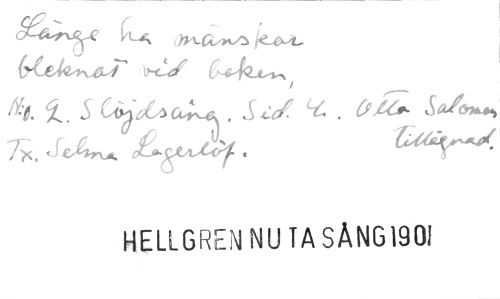 Länge ha mänskor
bleknat vid boken,
No. 2. Slöjdsång. Sid. 4. Otto Salomon
tillegnad.
Tx. Selma Lagerlöf.
HELLGREN NUTA SÅNG 1901